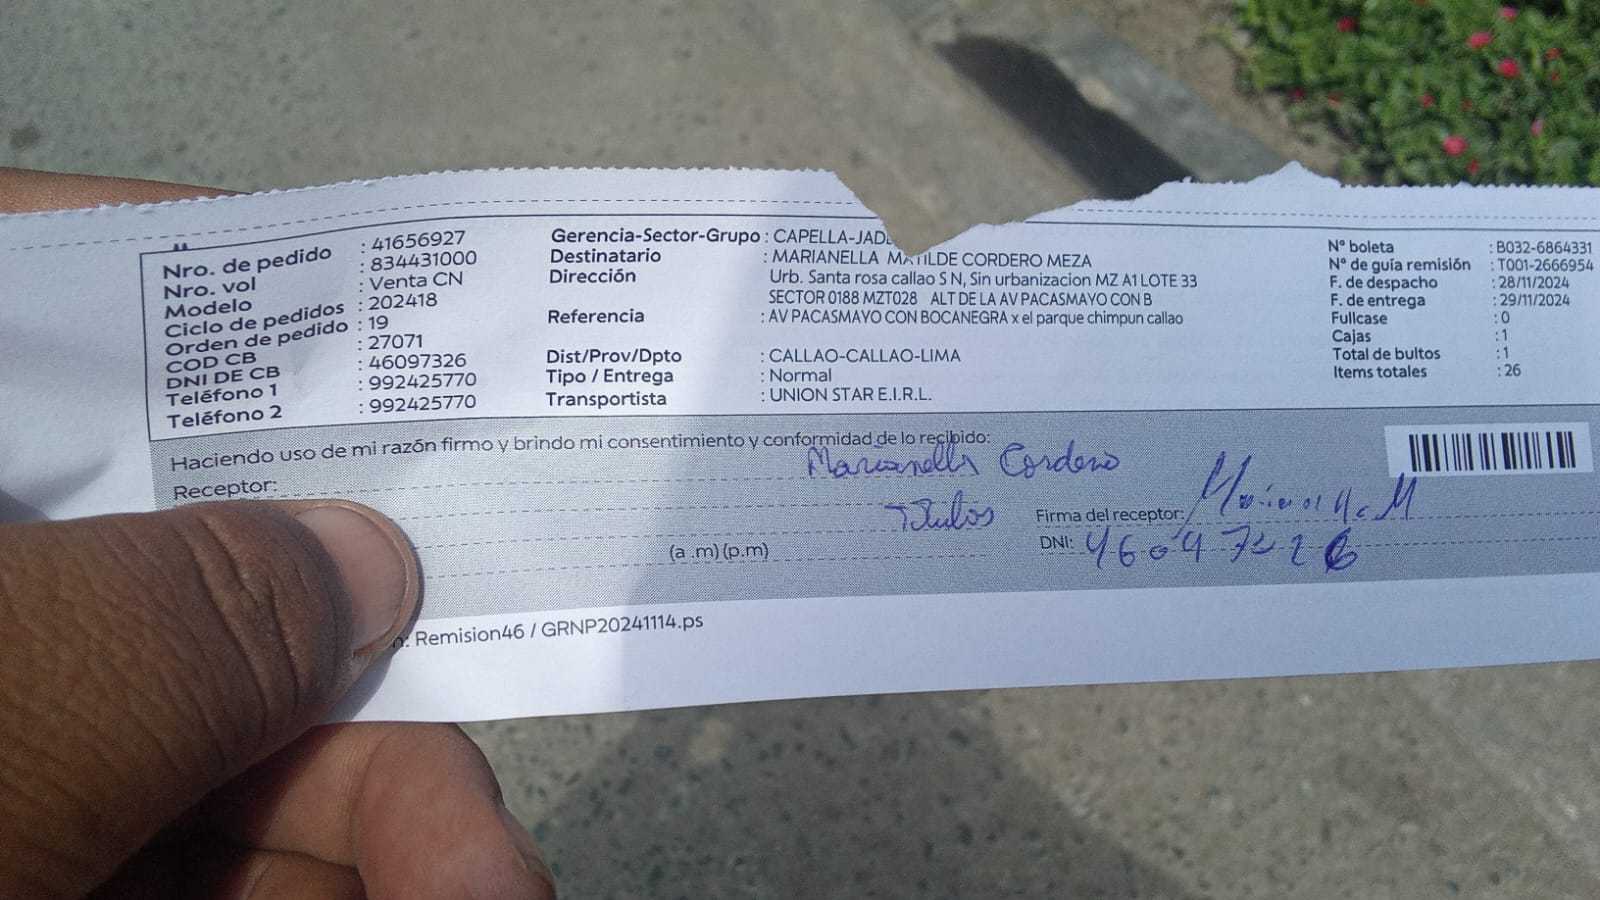 Nro. de pedido : 41656927
Nro. vol : 834431000
Modelo : Venta CN
Ciclo de pedidos : 202418
Orden de pedido : 19
COD CB : 27071
DNI DE CB : 46097326
Teléfono 1 : 992425770
Teléfono 2 : 992425770
Gerencia-Sector-Grupo : CAPELLA-JADE
Destinatario : MARIANELLA MATILDE CORDERO MEZA
Dirección Urb. Santa rosa callao S N, Sin urbanizacion MZ A1 LOTE 33
SECTOR 0188 MZT028 ALT DE LA AV PACASMAYO CON B
Referencia : AV PACASMAYO CON BOCANEGRA x el parque chimpun callao
Dist/Prov/Dpto : CALLAO-CALLAO-LIMA
Tipo / Entrega : Normal
Transportista : UNION STAR E.I.R.L.
N° boleta : B032-6864331
N° de guía remisión : T001-2666954
F. de despacho : 28/11/2024
F. de entrega : 29/11/2024
Fullcase : 0
Cajas : 1
Total de bultos : 1
Items totales : 26
Haciendo uso de mi razón firmo y brindo mi consentimiento y conformidad de lo recibido:
Receptor: Marianella Cordero
Firma del receptor:
(a .m) (p.m)
DNI: 46097326
: Remision46 / GRNP20241114.ps